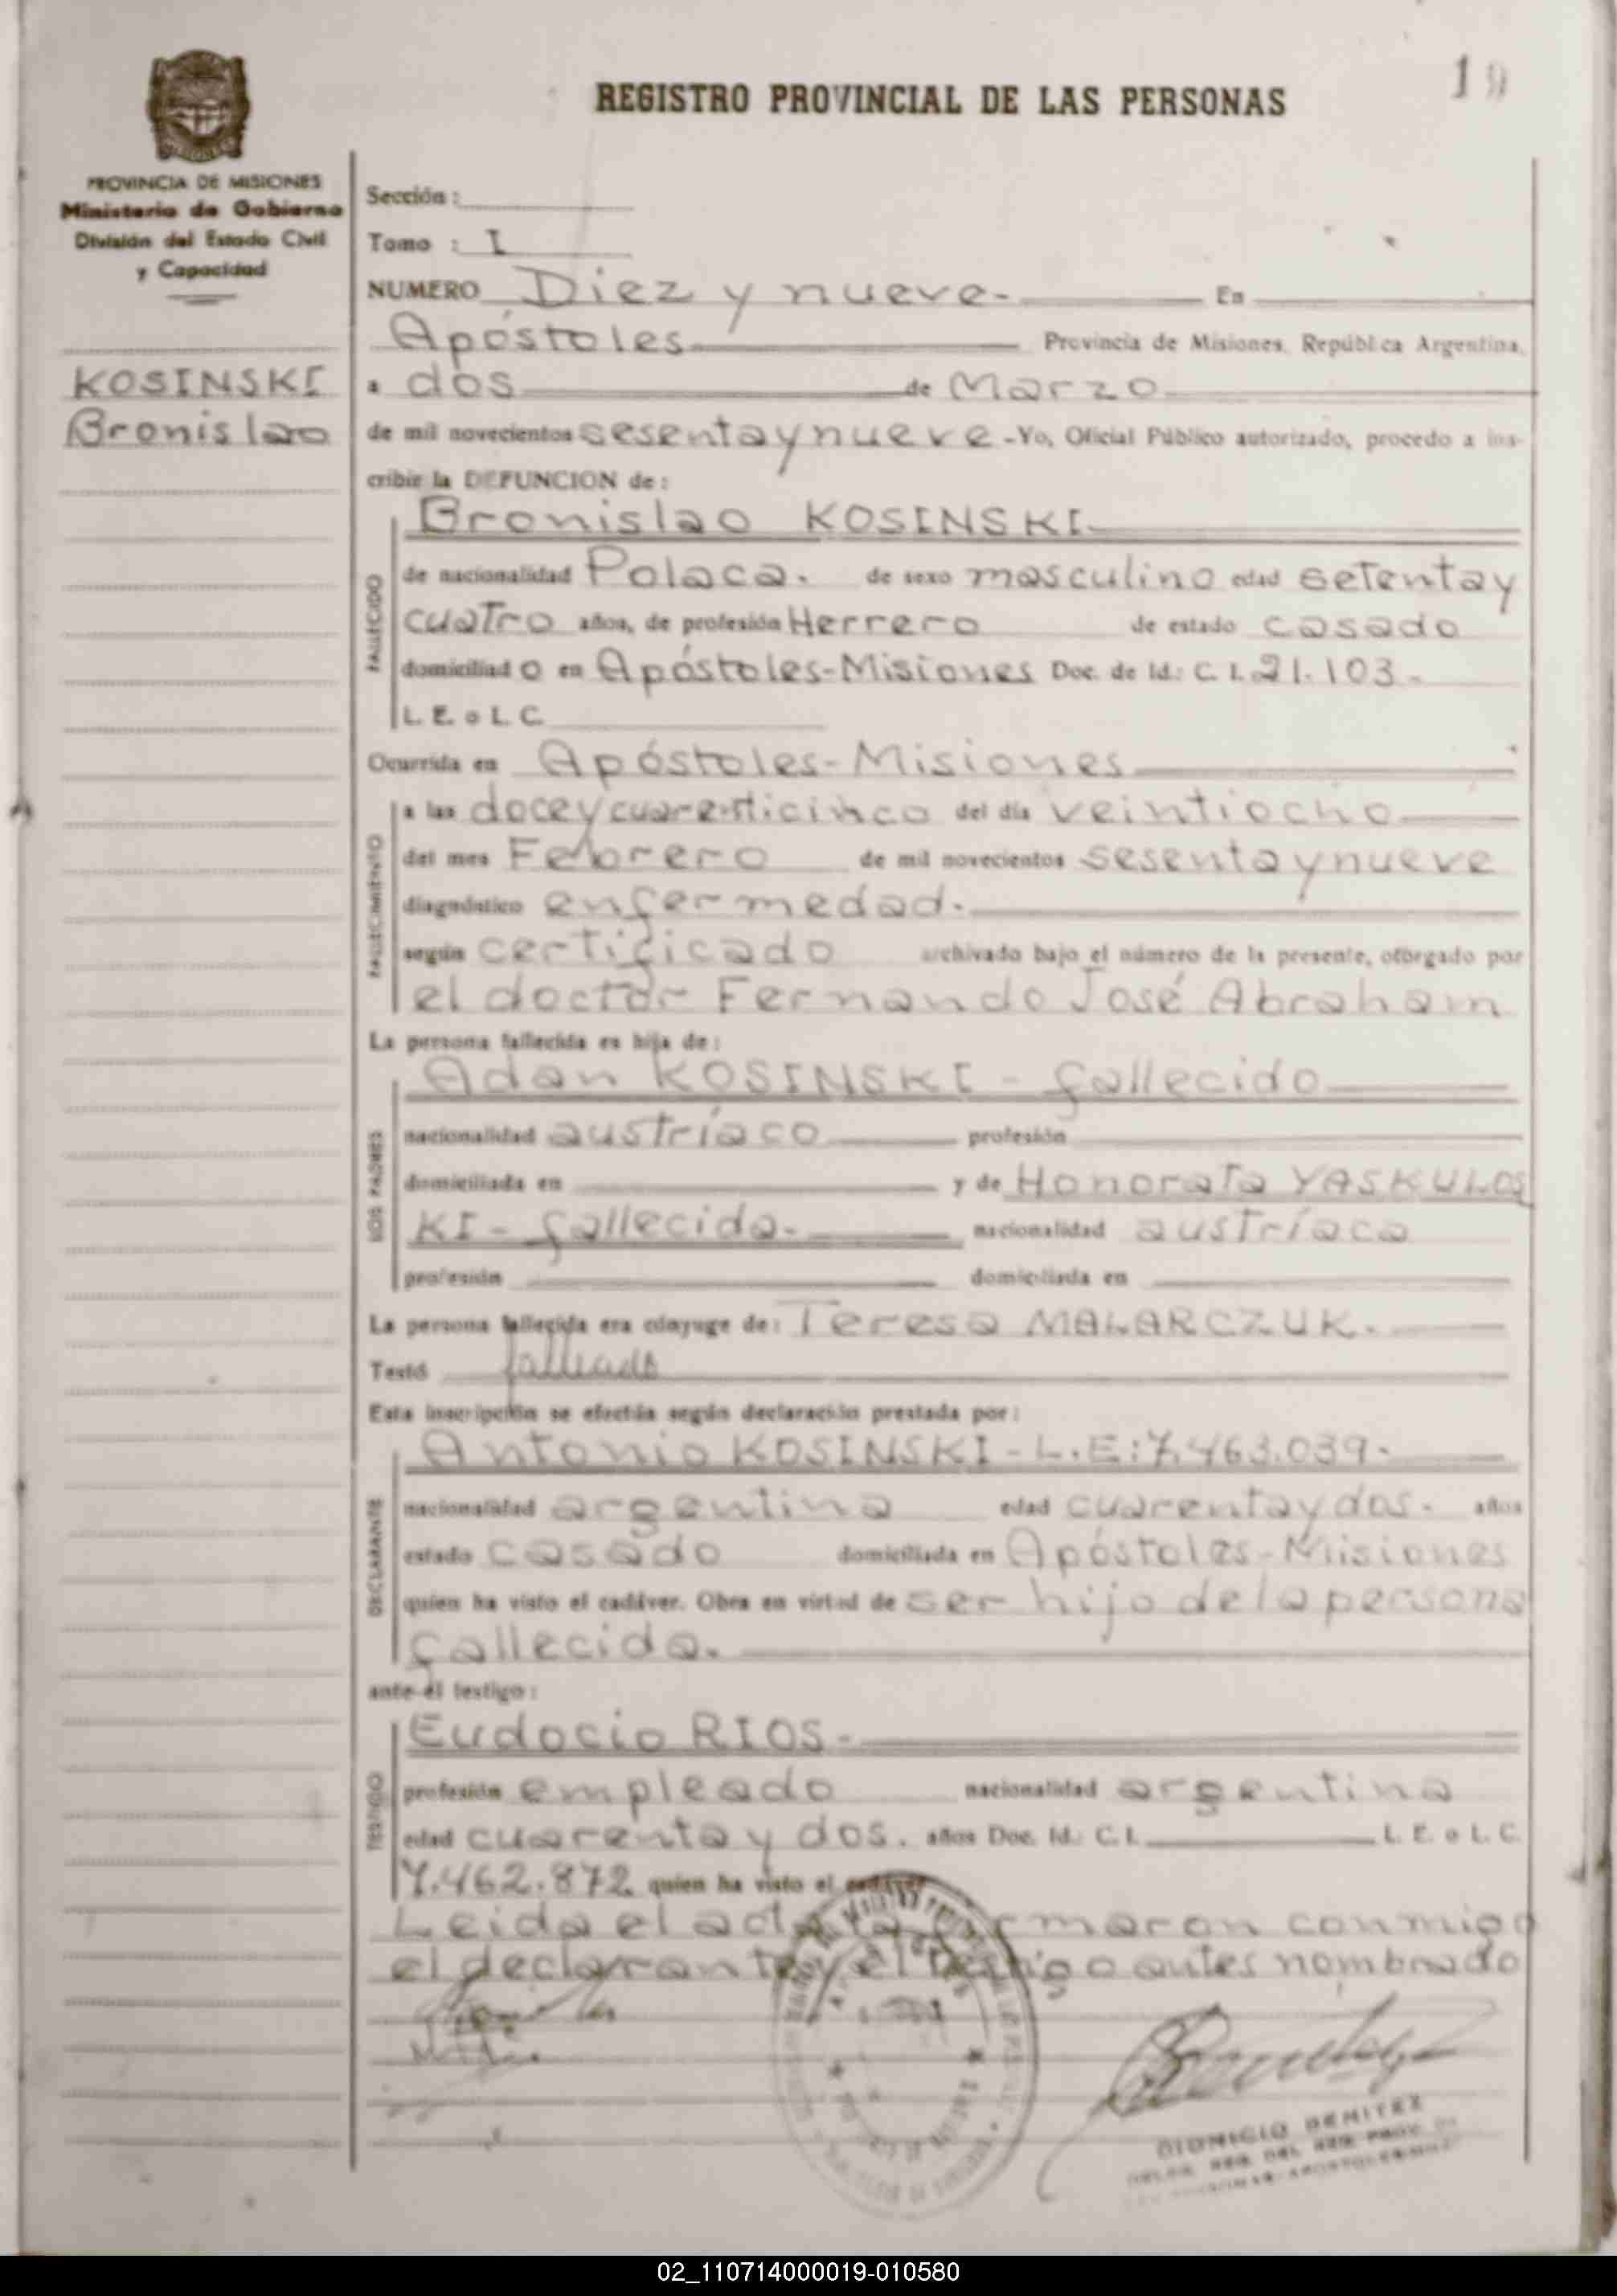 19
REGISTRO PROVINCIAL DE LAS PERSONAS
PROVINCIA DE MISIONES
Ministerio de Gobierno
División del Estado Civil
y Capacidad
KOSINSKI
Bronislao
Sección :
Tomo : I
NUMERO Diez y nueve- En
Apóstoles Provincia de Misiones, República Argentina,
a dos de Marzo
de mil novecientos sesenta y nueve - Yo, Oficial Público autorizado, procedo a ins-
cribir la DEFUNCION de :
Bronislao KOSINSKI
FALLECIDO
de nacionalidad Polaca. de sexo masculino edad setenta y
cuatro años, de profesión Herrero de estado casado
domiciliado en Apóstoles-Misiones Doc. de Id.: C. I. 21.103.-
L E. o L C
Ocurrida en Apóstoles-Misiones
FALLECIMIENTO
a las doce y cuarenticinco del día veintiocho
del mes Febrero de mil novecientos sesenta y nueve
diagnóstico enfermedad.
según certificado archivado bajo el número de la presente, otorgado por
el doctor Fernando José Abraham
La persona fallecida es hija de :
LOS PADRES
Adan KOSINSKI - fallecido
nacionalidad austríaco profesión
domiciliada en y de Honorata YASKULOS
KI - fallecida. nacionalidad austríaca
profesión domiciliada en
La persona fallecida era cónyuge de: Teresa MALARCZUK.
Testó
Esta inscripción se efectúa según declaración prestada por :
DECLARANTE
Antonio KOSINSKI - L.E: 7.463.039.
nacionalidad argentina edad cuarenta y dos. años
estado casado domiciliada en Apóstoles-Misiones
quien ha visto el cadáver. Obra en virtud de ser hijo de la persona
fallecida.
ante el testigo :
TESTIGO
Eudocio RIOS.
profesión empleado nacionalidad argentina
edad cuarenta y dos. años Doc. Id.: C. I. L. E. o L. C.
7.462.872 quien ha visto el cadáver
Leida el acta la firmaron conmigo
el declarante y el testigo antes nombrado
DIONICIO BENITEZ
02_110714000019-010580